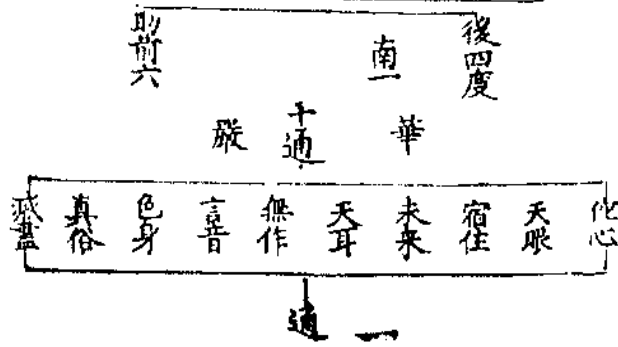 後四度
南一
助前六
華
十通
嚴
他心
天眼
宿住
未來
天耳
無作
言音
色身
真俗
滅盡
一通